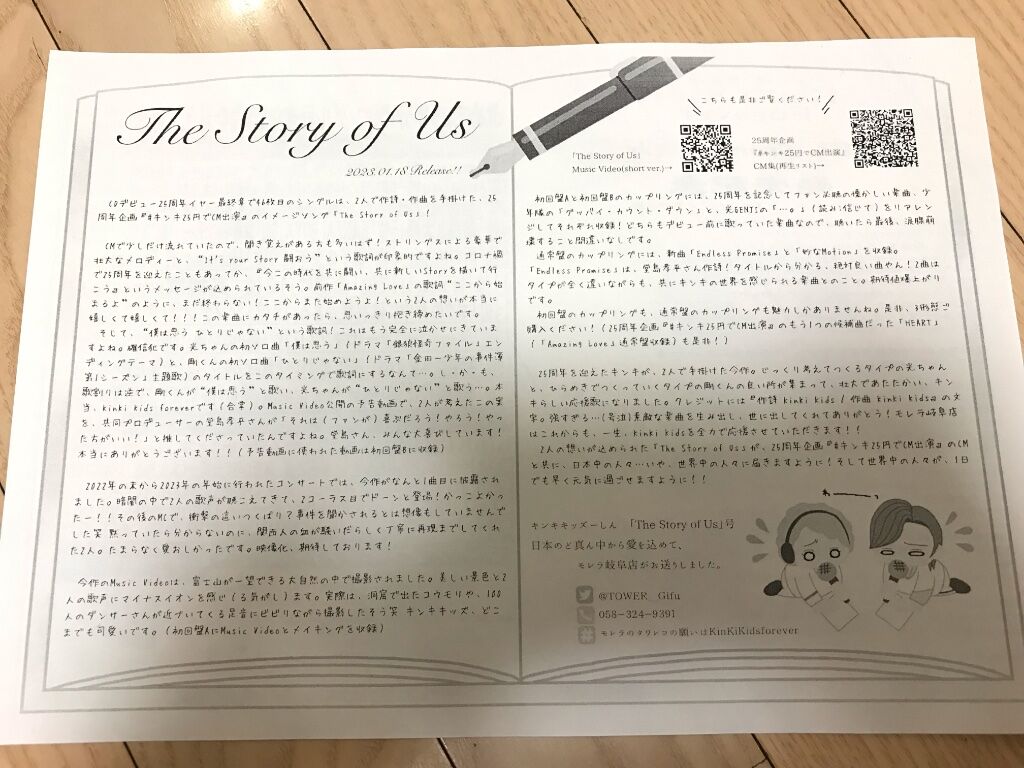 The Story of Us
2023.01.18 Release!!
CDデビュー25周年イヤー最終章で46枚目のシングルは、2人で作詩・作曲を手掛けた、25
周年企画『#キンキ25円でCM出演』のイメージソング「The Story of Us」!
CMで少しだけ流れていたので、聞き覚えがある方も多いはず!ストリングスによる豪華で
壮大なメロディーと、"It's your Story 闘おう"という歌詞が印象的ですよね。コロナ禍
で25周年を迎えたこともあってか、"今この時代を共に闘い、共に新しいStoryを描いて行
こう"というメッセージが込められているそう。前作「Amazing Love」の歌詞"ここから始
まるよ"のように、まだ終わらない!ここからまた始めようよ!という2人の想いが本当に
嬉しくて嬉しくて!!!!この楽曲にカタチがあったら、思いっきり抱き締めたいです。
そして、"僕は思う ひとりじゃない"という歌詞!これはもう完全に泣かせにきていま
すよね。確信犯です。光ちゃんの初ソロ曲「僕は思う」(ドラマ「銀狼怪奇ファイル」エン
ディングテーマ)と、剛くんの初ソロ曲「ひとりじゃない」(ドラマ「金田一少年の事件簿
第1シーズン」主題歌)のタイトルをこのタイミングで歌詞にするなんて…。し・か・も、
歌割りは逆で、剛くんが"僕は思う"と歌い、光ちゃんが"ひとりじゃない"と歌う…。本
当、kinki kids foreverです(合掌)。Music Video公開の予告動画で、2人が考えたこの案
を、共同プロデューサーの堂島孝平さんが「それは(ファンが)喜ぶだろう!やろう!やっ
た方がいい!」と推してくださっていたんですよね。堂島さん、みんな大喜びしています!
本当にありがとうございます!!(予告動画に使われた動画は初回盤Bに収録)
2022年の末から2023年の年始に行われたコンサートでは、今作がなんと1曲目に披露され
ました。暗闇の中で2人の歌声が聴こえてきて、2コーラス目でドーンと登場!かっこよかっ
たー!!その後のMCで、衝撃の這いつくばり?事件を聞かされるとは想像もしていませんで
した笑 黙っていたら分からないのに、関西人の血が騒いだらしく丁寧に再現までしてくれ
た2人。たまらなく愛おしかったです。映像化、期待しております!
今作のMusic Videoは、富士山が一望できる大自然の中で撮影されました。美しい景色と2
人の歌声にマイナスイオンを感じ(る気がし)ます。実際は、洞窟で出たコウモリや、100
人のダンサーさんが近づいてくる足音にビビりながら撮影したそう笑 キンキキッズ、どこ
までも可愛いです。(初回盤AにMusic Videoとメイキングを収録)
こちらも是非ご覧ください!
「The Story of Us」
Music Video(short ver.)→
25周年企画
『#キンキ25円でCM出演』
CM集(再生リスト)→
初回盤Aと初回盤Bのカップリングには、25周年を記念してファン必聴の懐かしい楽曲、少
年隊の「グッバイ・カウント・ダウン」と、光GENJIの「…。」(読み:信じて)をリアレン
ジしてそれぞれ収録!どちらもデビュー前に歌っていた楽曲なので、聴いたら最後、涙腺崩
壊すること間違いなしです。
通常盤のカップリングには、新曲「Endless Promise」と「妙なMotion」を収録。
「Endless Promise」は、堂島孝平さん作詩!タイトルから分かる、絶対良い曲やん!2曲は
タイプが全く違いながらも、共にキンキの世界を感じられる楽曲とのこと。期待値爆上がり
です。
初回盤のカップリングも、通常盤のカップリングも魅力しかありませんね。是非、3形態ご
購入ください!(25周年企画『#キンキ25円でCM出演』のもう1つの候補曲だった「HEART」
(「Amazing Love」通常盤収録)も是非!)
25周年を迎えたキンキが、2人で手掛けた今作。じっくり考えてつくるタイプの光ちゃん
と、ひらめきでつくっていくタイプの剛くんの良い所が集まって、壮大であたたかい、キン
キらしい応援歌になりました。クレジットには『作詩 kinki kids / 作曲 kinki kids』の文
字。強すぎる…(号泣)素敵な楽曲を生み出し、世に出してくれてありがとう!モレラ岐阜店
はこれからも、一生、kinki kidsを全力で応援させていただきます!!
2人の想いが込められた「The Story of Us」が、25周年企画『#キンキ25円でCM出演』のCM
と共に、日本中の人々…いや、世界中の人々に届きますように!そして世界中の人々が、1日
でも早く元気に過ごせますように!!
わーーーっ
キンキキッズーしん 「The Story of Us」号
日本のど真ん中から愛を込めて、
モレラ岐阜店がお送りしました。
@TOWER_Gifu
058-324-9391
モレラのタワレコの願いはKinKiKidsforever